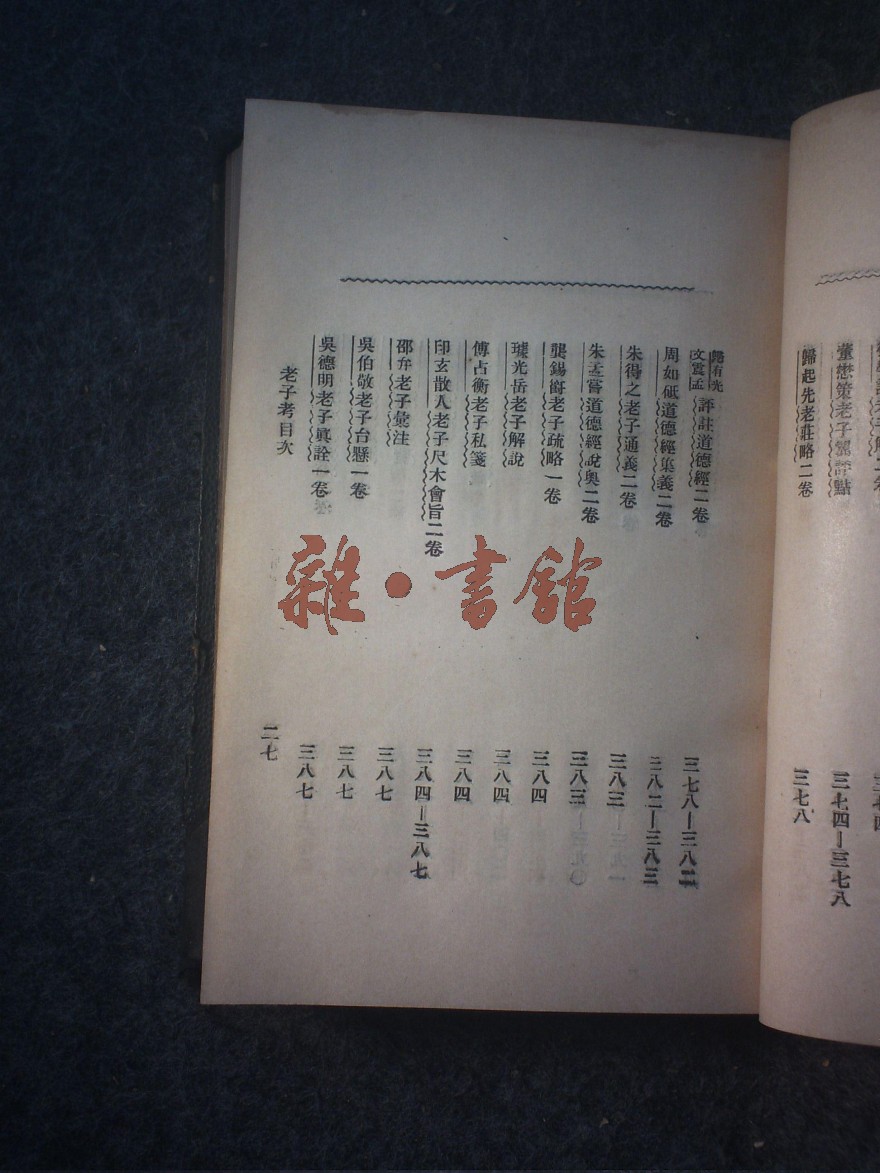 董懋策老子翼評點 三七四—三七八
歸起先老莊略二卷 三七八
歸有光
文震孟
評註道德經二卷 三七八—三八二
周如砥道德經集義二卷 三八二—三八三
朱得之老子通義二卷 三八三
朱孟嘗道德經說奧二卷 三八三
龔錫爵老子疏略一卷 三八四
璩光岳老子解說 三八四
傅占衡老子私箋 三八四
印玄散人老子尺木會旨二卷 三八四—三八七
邵弁老子彙注 三八七
吳伯敬老子台懸一卷 三八七
吳德明老子眞詮一卷 三八七
老子考目次 二七
雜·書館